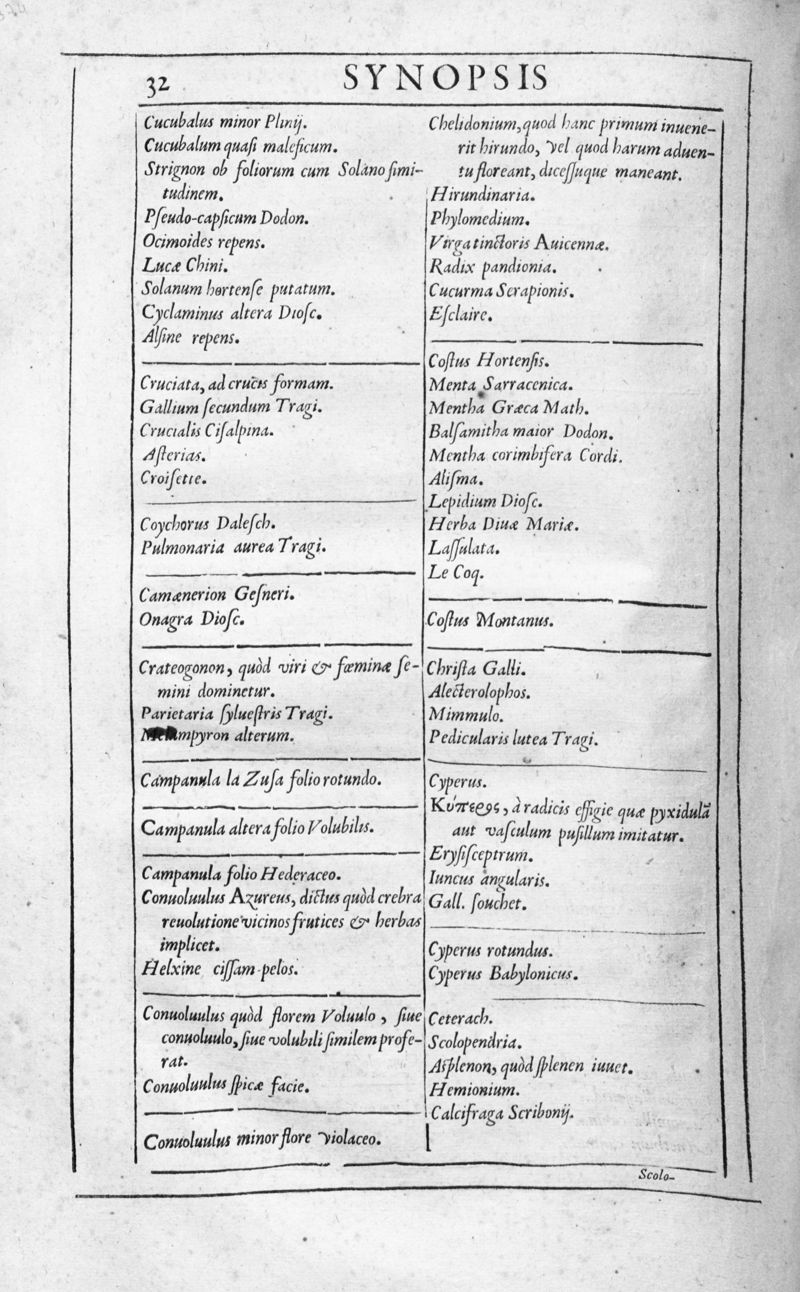 32
SYNOPSIS
Cucubalus minor Plinij.
Cucubalum quaſi maleficum.
Strignon ob foliorum cum Solano ſimi-
tudinem.
Pſeudo-capſicum Dodon.
Ocimoides repens.
Lucæ Chini.
Solanum hortenſe putatum.
Cyclaminus altera Dioſc.
Alſine repens.
Cruciata, ad crucis formam.
Gallium ſecundum Tragi.
Crucialis Ciſalpina.
Aſterias.
Croiſette.
Coychorus Daleſch.
Pulmonaria aurea Tragi.
Camænerion Geſneri.
Onagra Dioſc.
Crateogonon, quòd viri & fœminæ ſe-
mini dominetur.
Parietaria ſylueſtris Tragi.
Melampyron alterum.
Campanula la Zuſa folio rotundo.
Campanula altera folio Volubilis.
Campanula folio Hederaceo.
Conuoluulus Azureus, dictus quòd crebra
reuolutione vicinos frutices & herbas
implicet.
Helxine ciſſam-pelos.
Conuoluulus quòd florem Voluulo, ſiue
conuoluulo, ſiue volubili ſimilem profe-
rat.
Conuoluulus ſpicæ facie.
Conuoluulus minor flore violaceo.
Chelidonium, quod hanc primum inuene-
rit hirundo, vel quod harum aduen-
tu floreant, diceſſuque maneant.
Hirundinaria.
Phylomedium.
Virga tinctoris Auicennæ.
Radix pandionia.
Cucurma Serapionis.
Eſclaire.
Coſtus Hortenſis.
Menta Sarracenica.
Mentha Græca Math.
Balſamitha maior Dodon.
Mentha corimbifera Cordi.
Aliſma.
Lepidium Dioſc.
Herba Diuæ Mariæ.
Laſſulata.
Le Coq.
Coſtus Montanus.
Chriſta Galli.
Alecterolophos.
Mimmulo.
Pedicularis lutea Tragi.
Cyperus.
Κύπερος, à radicis effigie quæ pyxidulã
aut vaſculum puſillum imitatur.
Eryſiſceptrum.
Iuncus angularis.
Gall. ſouchet.
Cyperus rotundus.
Cyperus Babylonicus.
Ceterach.
Scolopendria.
Aſplenon, quòd ſplenen iuuet.
Hemionium.
Calcifraga Scribonij.
Scolo-